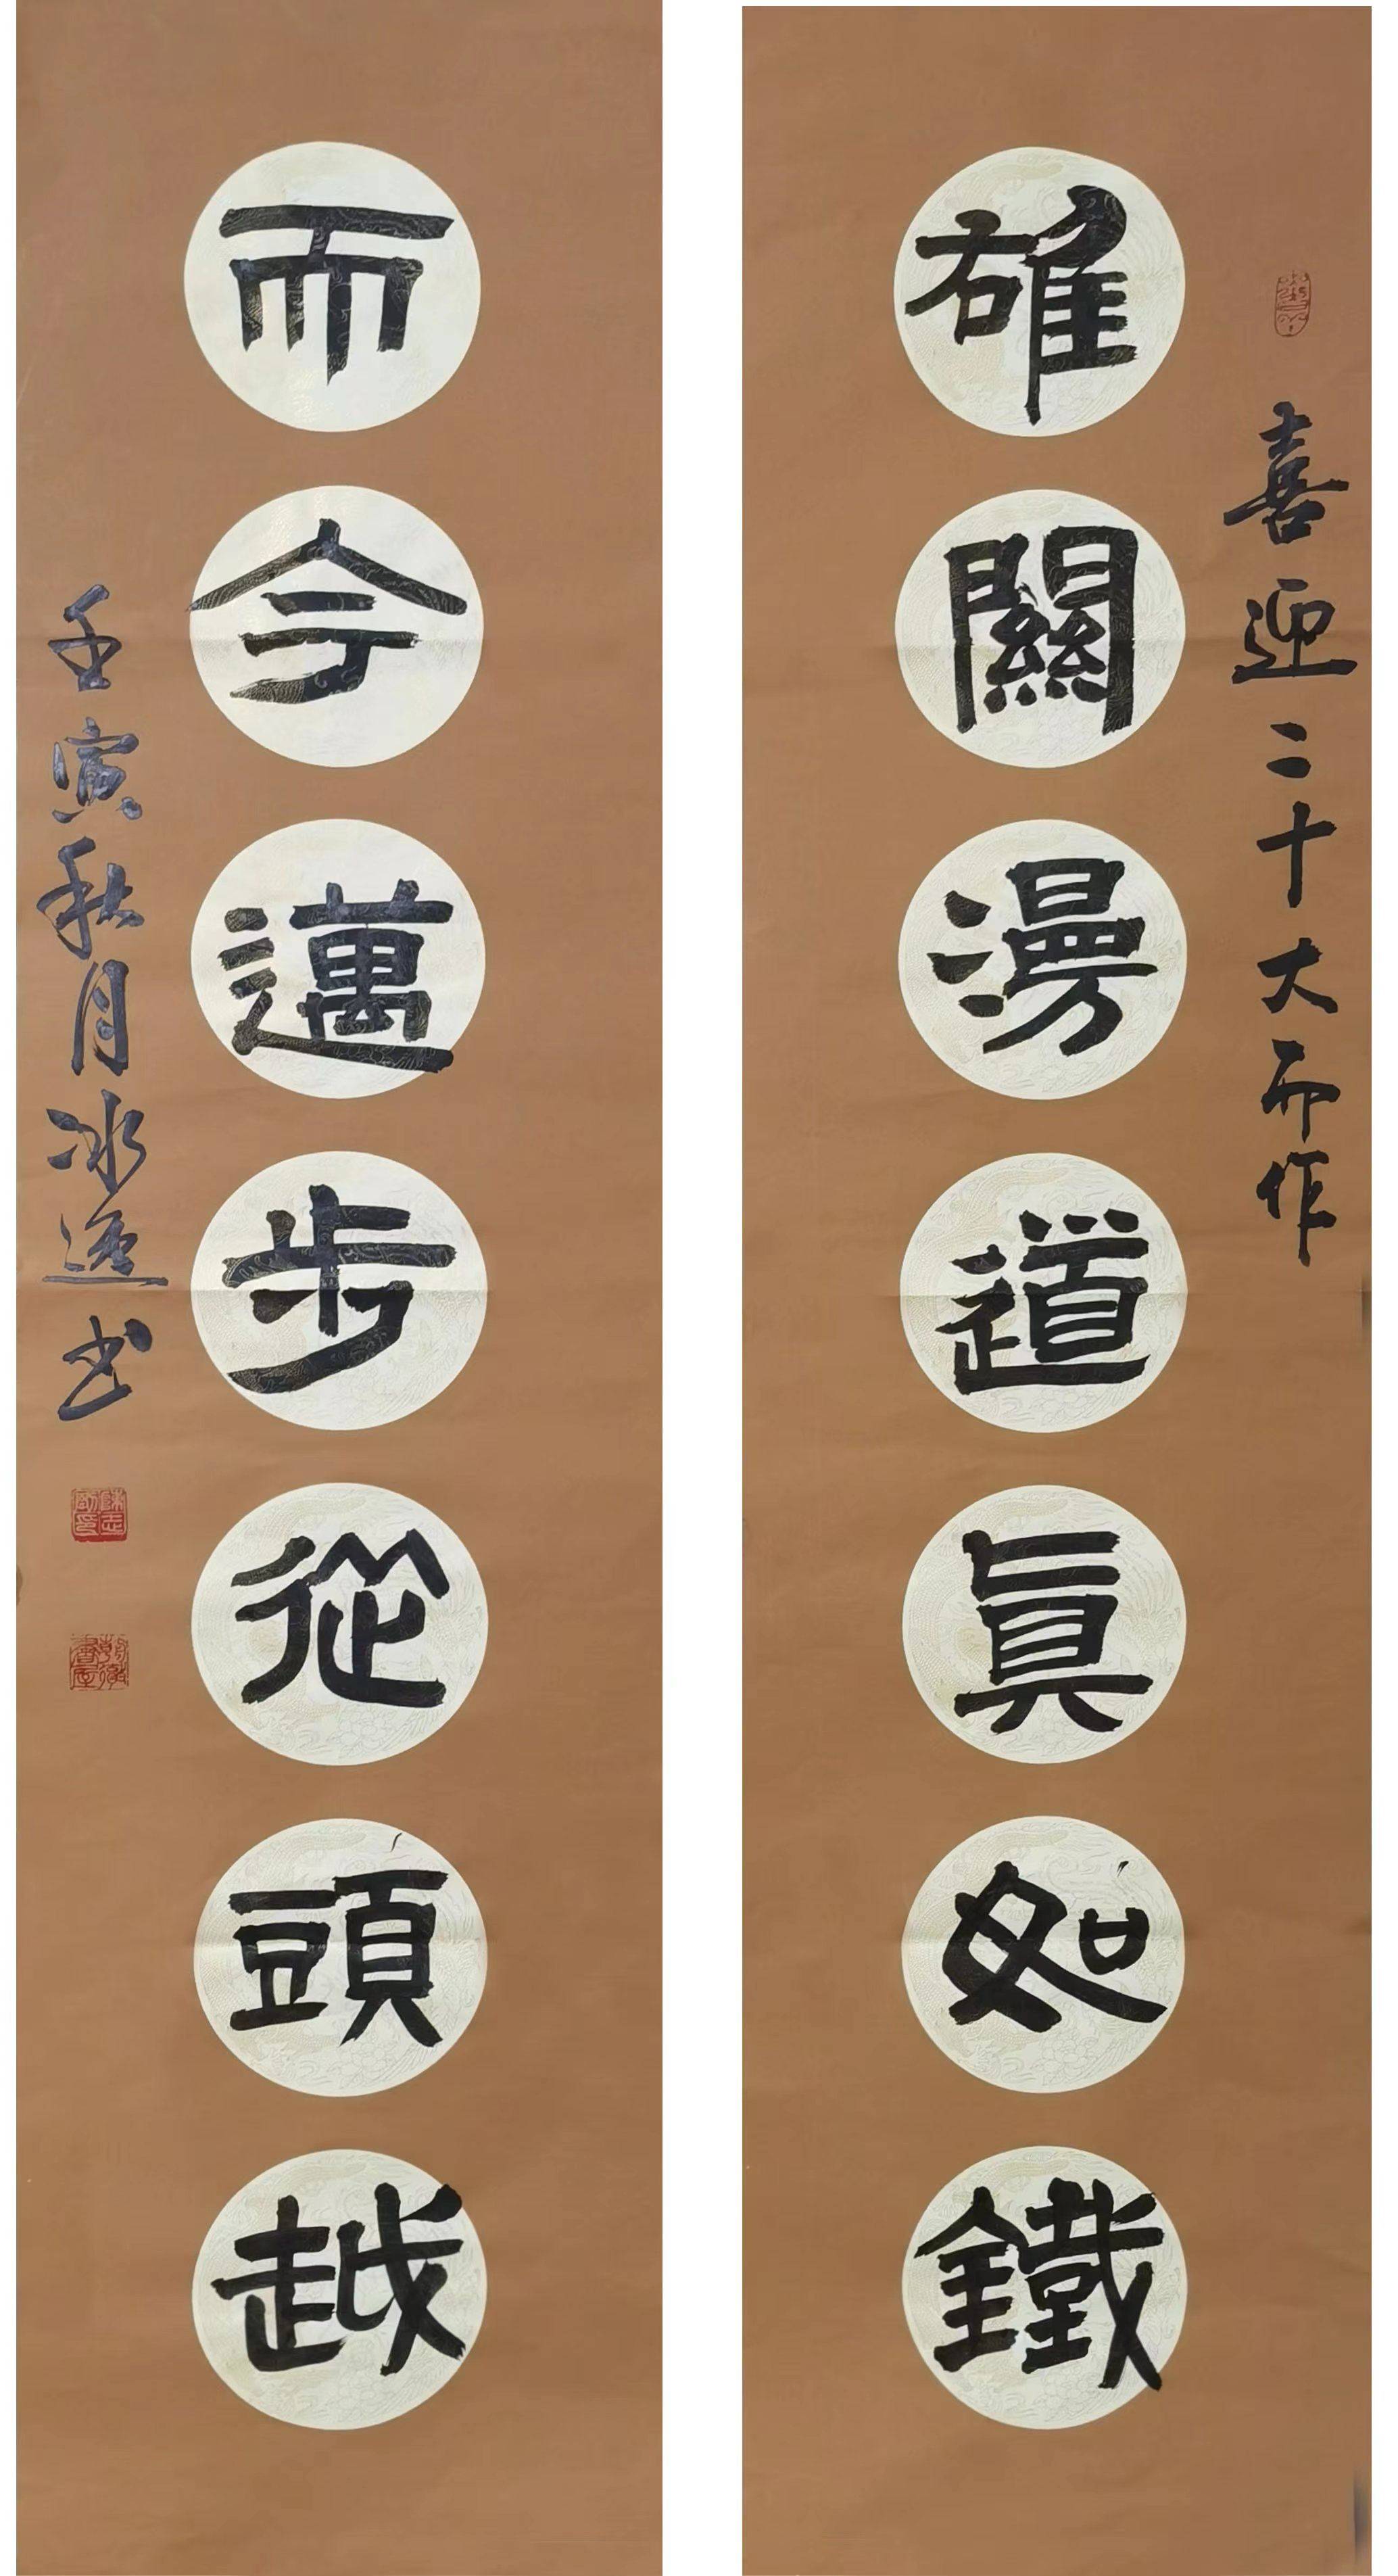 喜迎二十大而作
雄關漫道真如鐵
而今邁步從頭越
壬寅秋月冰逸书